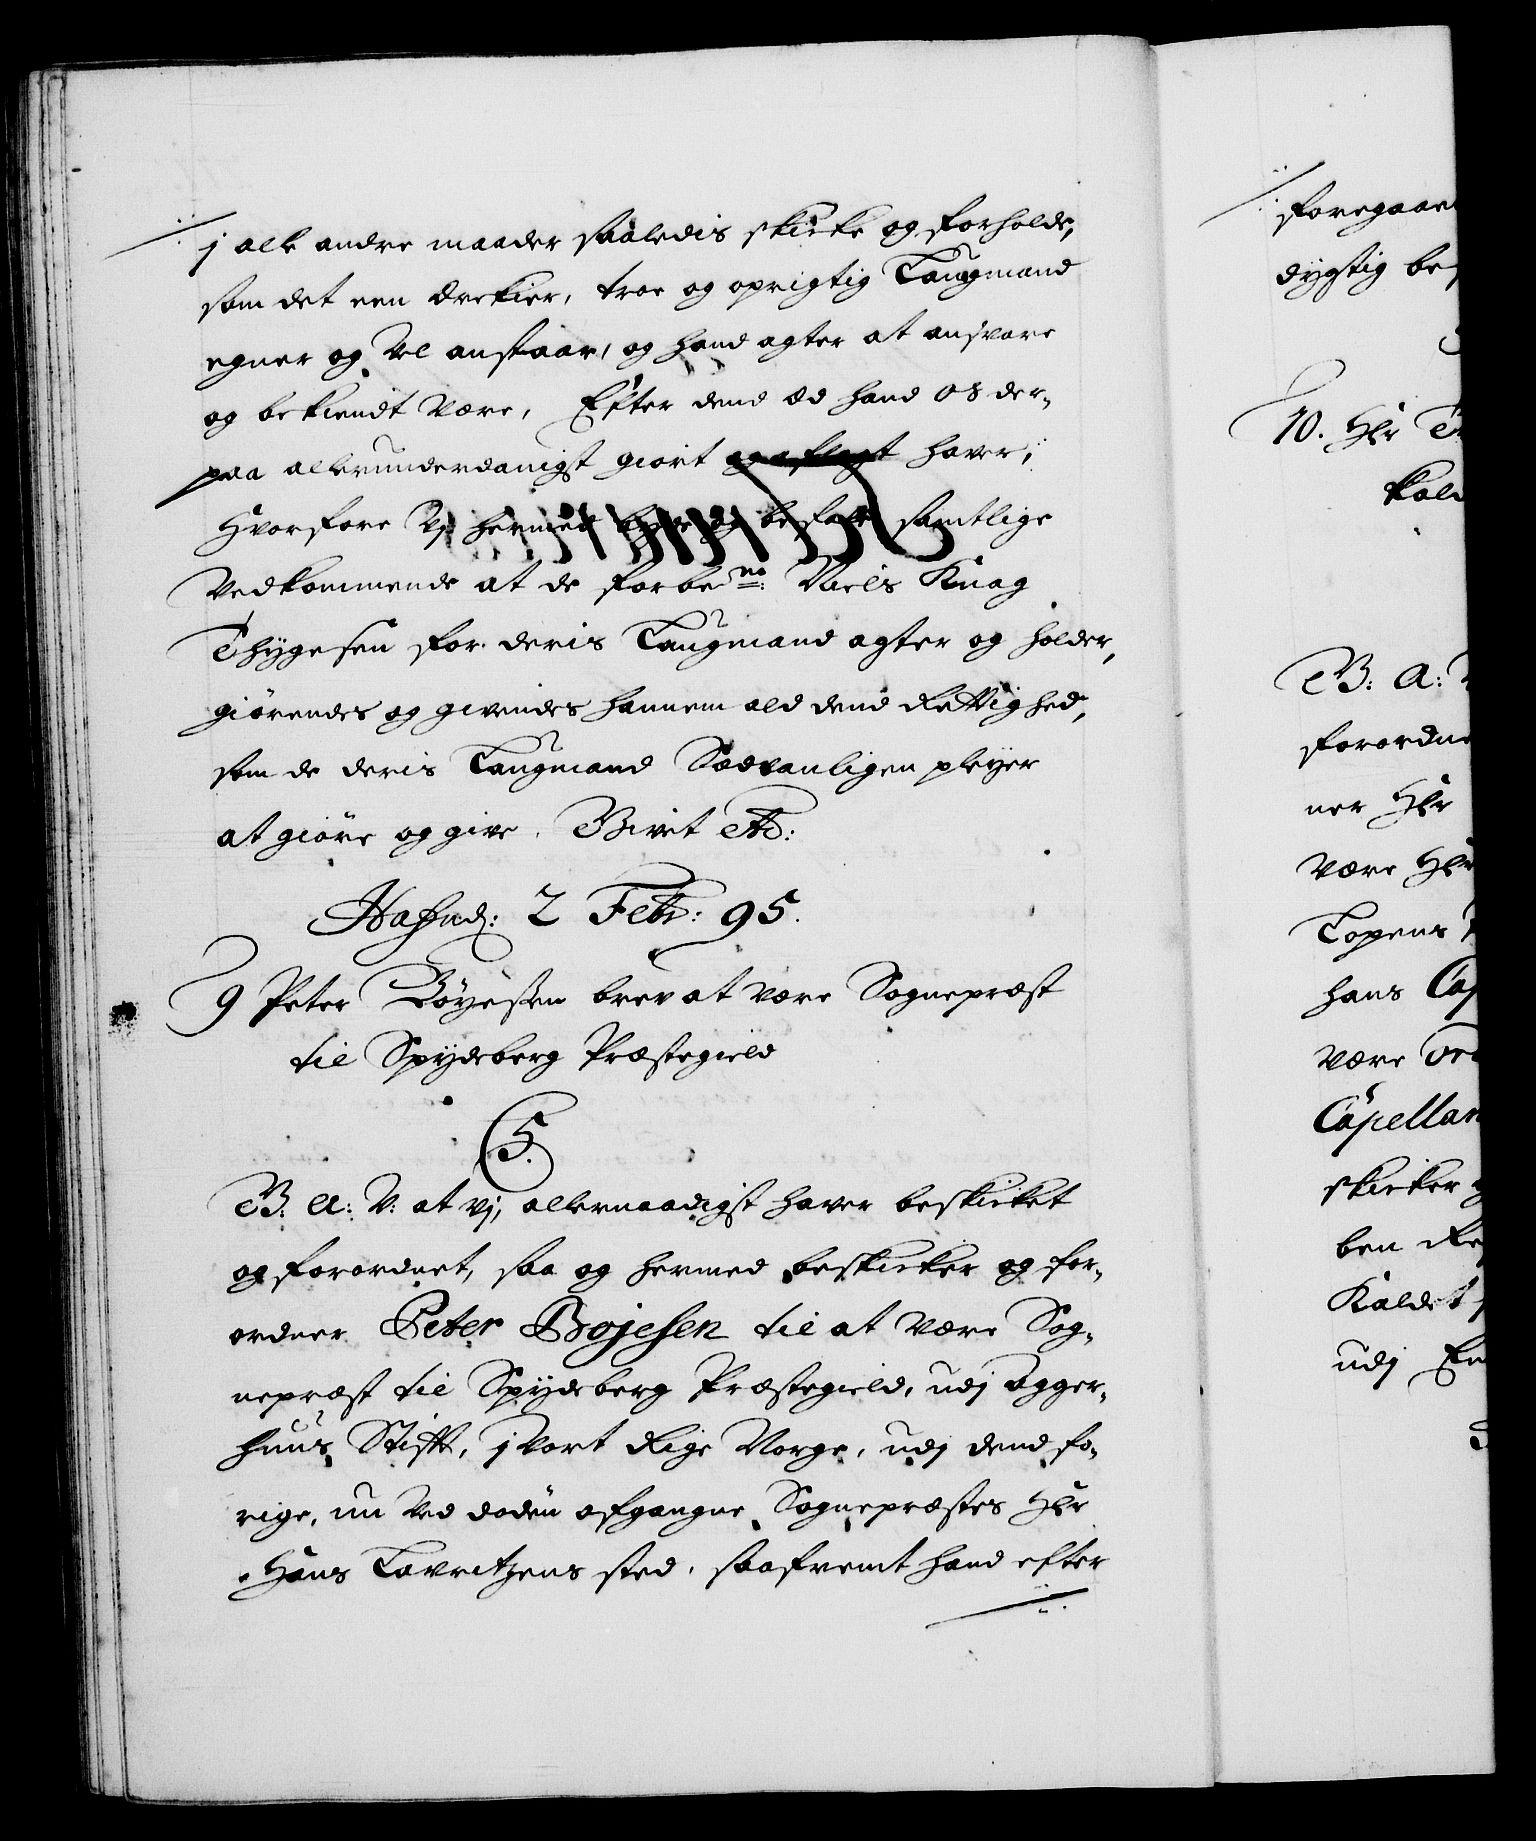 j alle andre maader saaledis skicke og forholde,
som det een ærekier, troe og oprigtig Laugmand
egner og vel anstaar, og hand agter at ansvare
og bekiendt være, Efter dend Æd hand os der-
paa allerunderdanigst giort og aflagt haver;
Hvorfore Vj hermed byde og befale samtlige
Vedkommende at de forbene: Niels Knag
Thygesen for deris Laugmand agter og holder,
giörendes og givendes hannem ald dend Rettighed,
som de deris Laugmand Sædvanligen pleyer
at giöre og give. Bivet Etc:
Hafniæ: 2 Febr: 95.
9 Peter Böyesen brev at være Sognepræst
til Spydeberg Præstegield
C5.
G. A: V: at vj, allernaadigst haver beskicket
og forordnet, saa og hermed beskicker og for-
ordner Peter Bojesen til at være Sog-
nepræst til Spydeberg Præstegield, udj Agger-
huus Stift, j Vort Rige Norge, udj dend fo-
rige, nu ved döden afgangne Sognepræstes Hr
Hans Lavritzens sted, saafremt hand efter
foregaaen
dygtig be
10. Hr
kal
B: A:
forordne
ner Hr
være Hr
hans Cap
være
Capellan
skicker
ben Re
Kaldet
udj